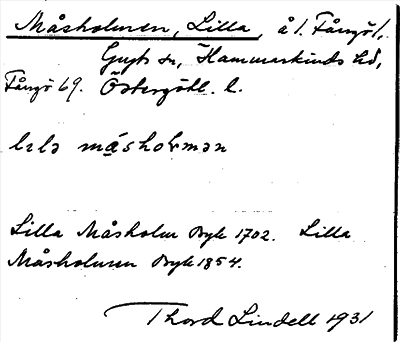 Måsholmen, Lilla, å l. Fångö l.
Gryts sn, Hammarkinds hd,
Fångö 69. Östergötl. l.
lɩlɘ måsholmɘn
Lilla Måsholm Bylr 1702. Lilla
Måsholmen Bylr 1854.
Thord Lindell 1931